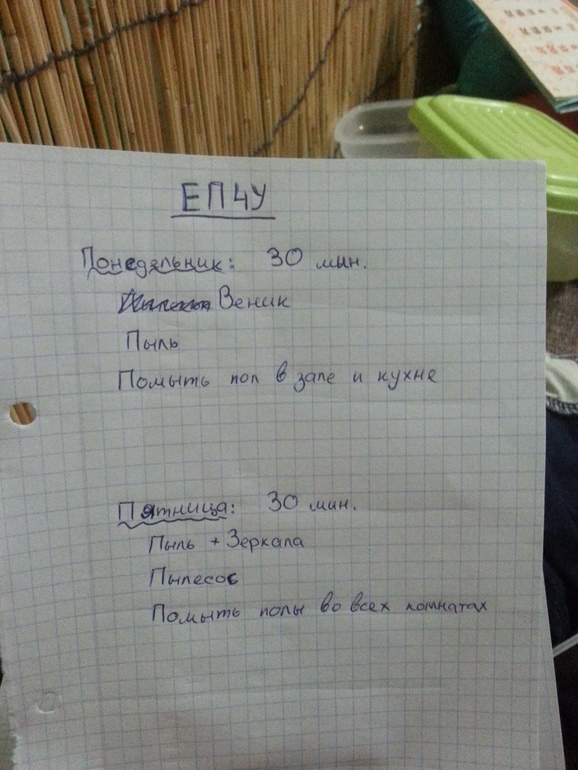 ЕПЧУ
Понедельник: 30 мин.
Веник
Пыль
Помыть пол в зале и кухне
Пятница: 30 мин.
Пыль + Зеркала
Пылесос
Помыть полы во всех комнатах